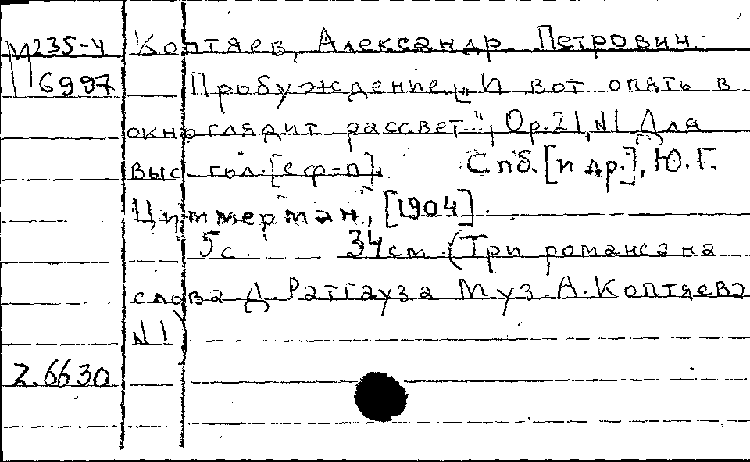 М235-4 Коптяев, Александр Петрович.
6997 Пробуждение „И вот опять в
окно глядит рассвет", Op.21, №1 Для
выс. гол. [с ф-п]. Спб. [и др.], Ю.Г.
Циммерман, [1904].
5 с. 34 см (Три романса на
слова Д. Ратгауза Муз А. Коптяева
№1)
Z.6630